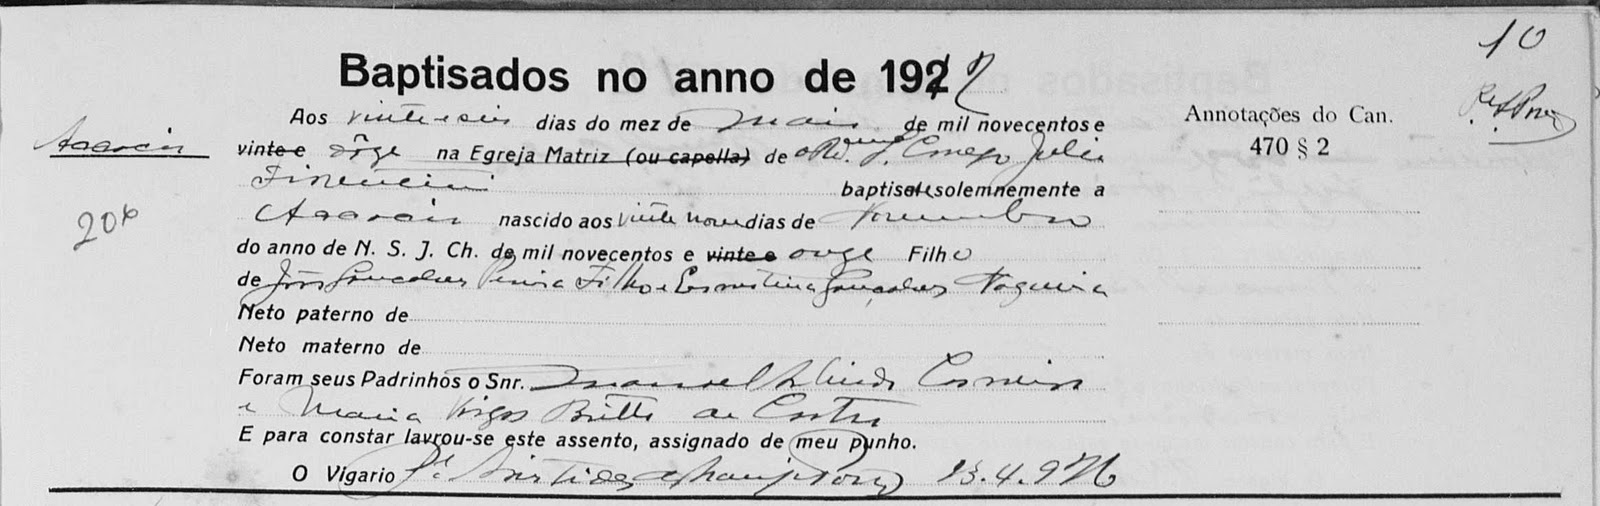 10
Baptisados no anno de 1912
Aos vinte e seis dias do mez de Maio de mil novecentos e
Annotações do Can.
470 § 2
Acacio
vinte e doze na Egreja Matriz (ou capella) de o Conego Julio
baptisou solemnemente a
206
Acacio nascido aos vinte nove dias de Novembro
do anno de N. S. J. Ch. de mil novecentos e vinte e onze Filho
de João Gonçalves Pereira Filho e Ernestina Gonçalves Nogueira
Neto paterno de
Neto materno de
Foram seus Padrinhos o Snr. Manoel Carneiro
e Maria Britto da Costa
E para constar lavrou-se este assento, assignado de meu punho.
O Vigario Pe. 13.4.976